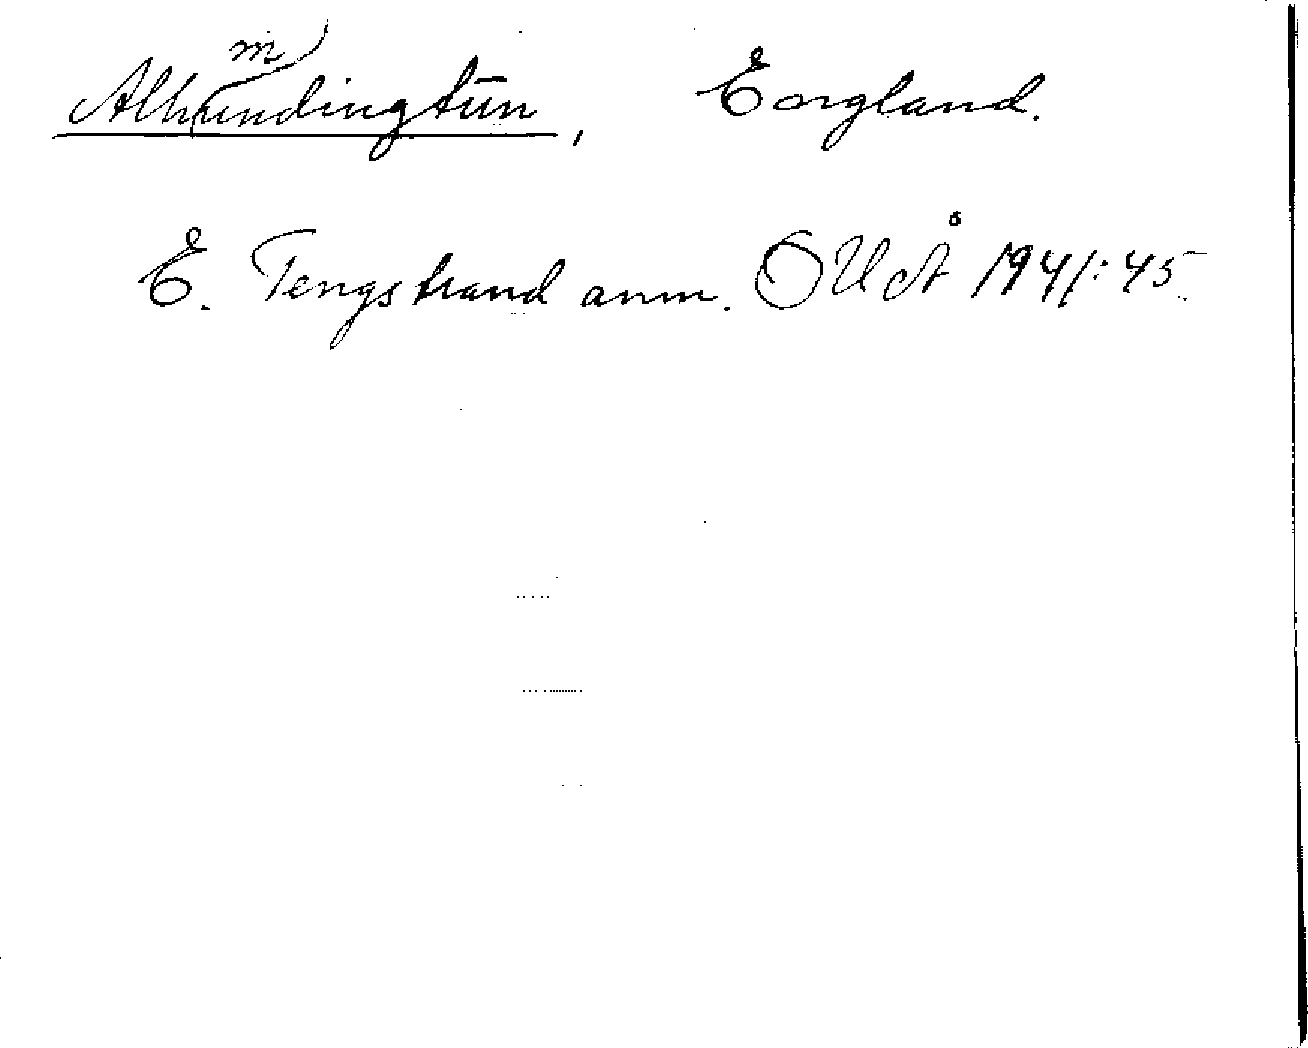 Alhmundingtūn, England.
E. Tengstrand anm. OUÅ 1941:45.